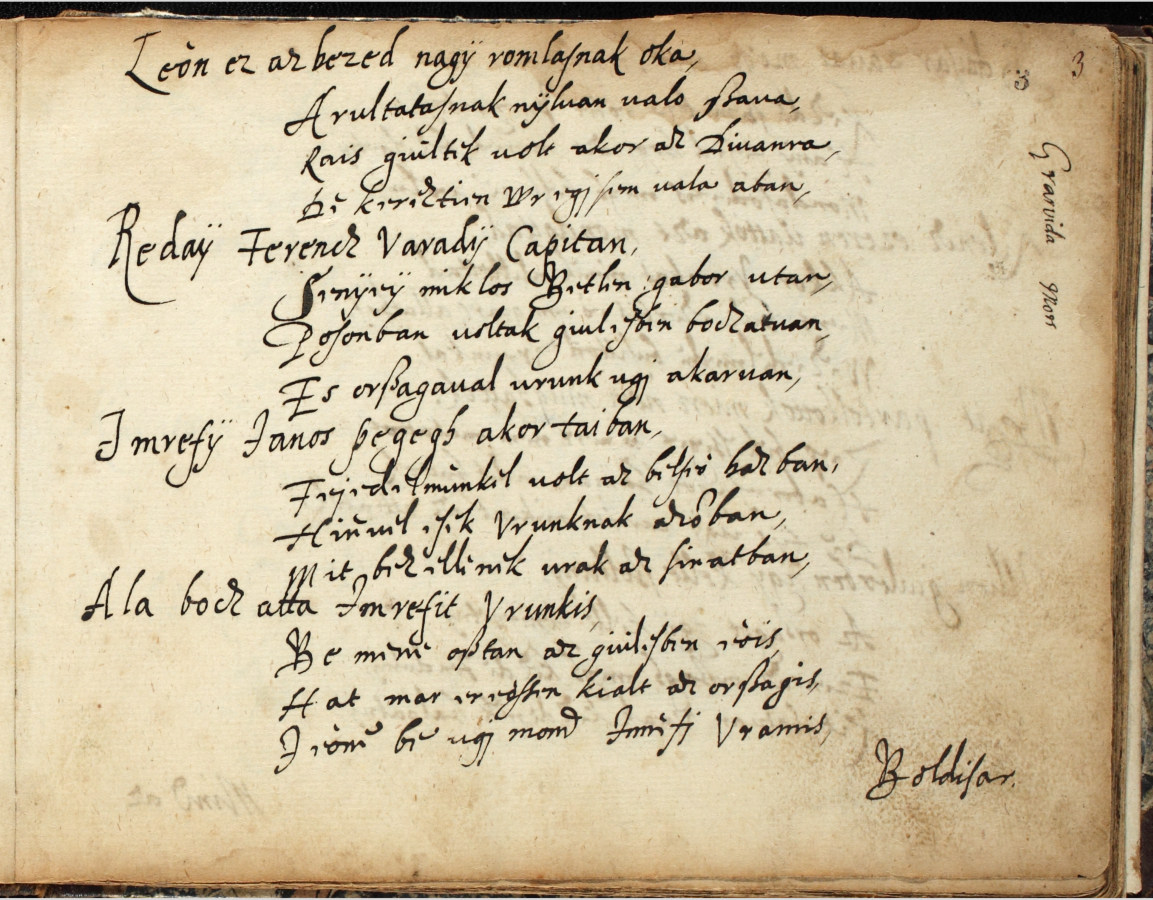 3
3
Leòn ez az bezed nagÿ romlasnak oka,
Arultatasnak nÿluan valo ßaua,
Rais giültek volt akor az Diuanra,
De kereztien Wr egj sem vala aban,
Redaÿ Ferencz Varadÿ Capitan,
Senÿeÿ miklos Betlen gabor utan,
Posonban voltak giulesben boczatuan,
Es orßagaual urunk ugj akaruan,
Imrefÿ Ianos akor taiban,
Fejedelmünkel volt az belseö hazban,
Hiüuel esek Vrunknak azoban,
Mit bezellenek urak az sinatban,
Ala bocz atta Imrefit Vrunkis,
Be mene oßtan az giülesben eöis,
Hat mar eregßen kialt az orßagis,
Ieöne be ugj mond Imrefi Vramis,
Boldisar.
Grauida mors